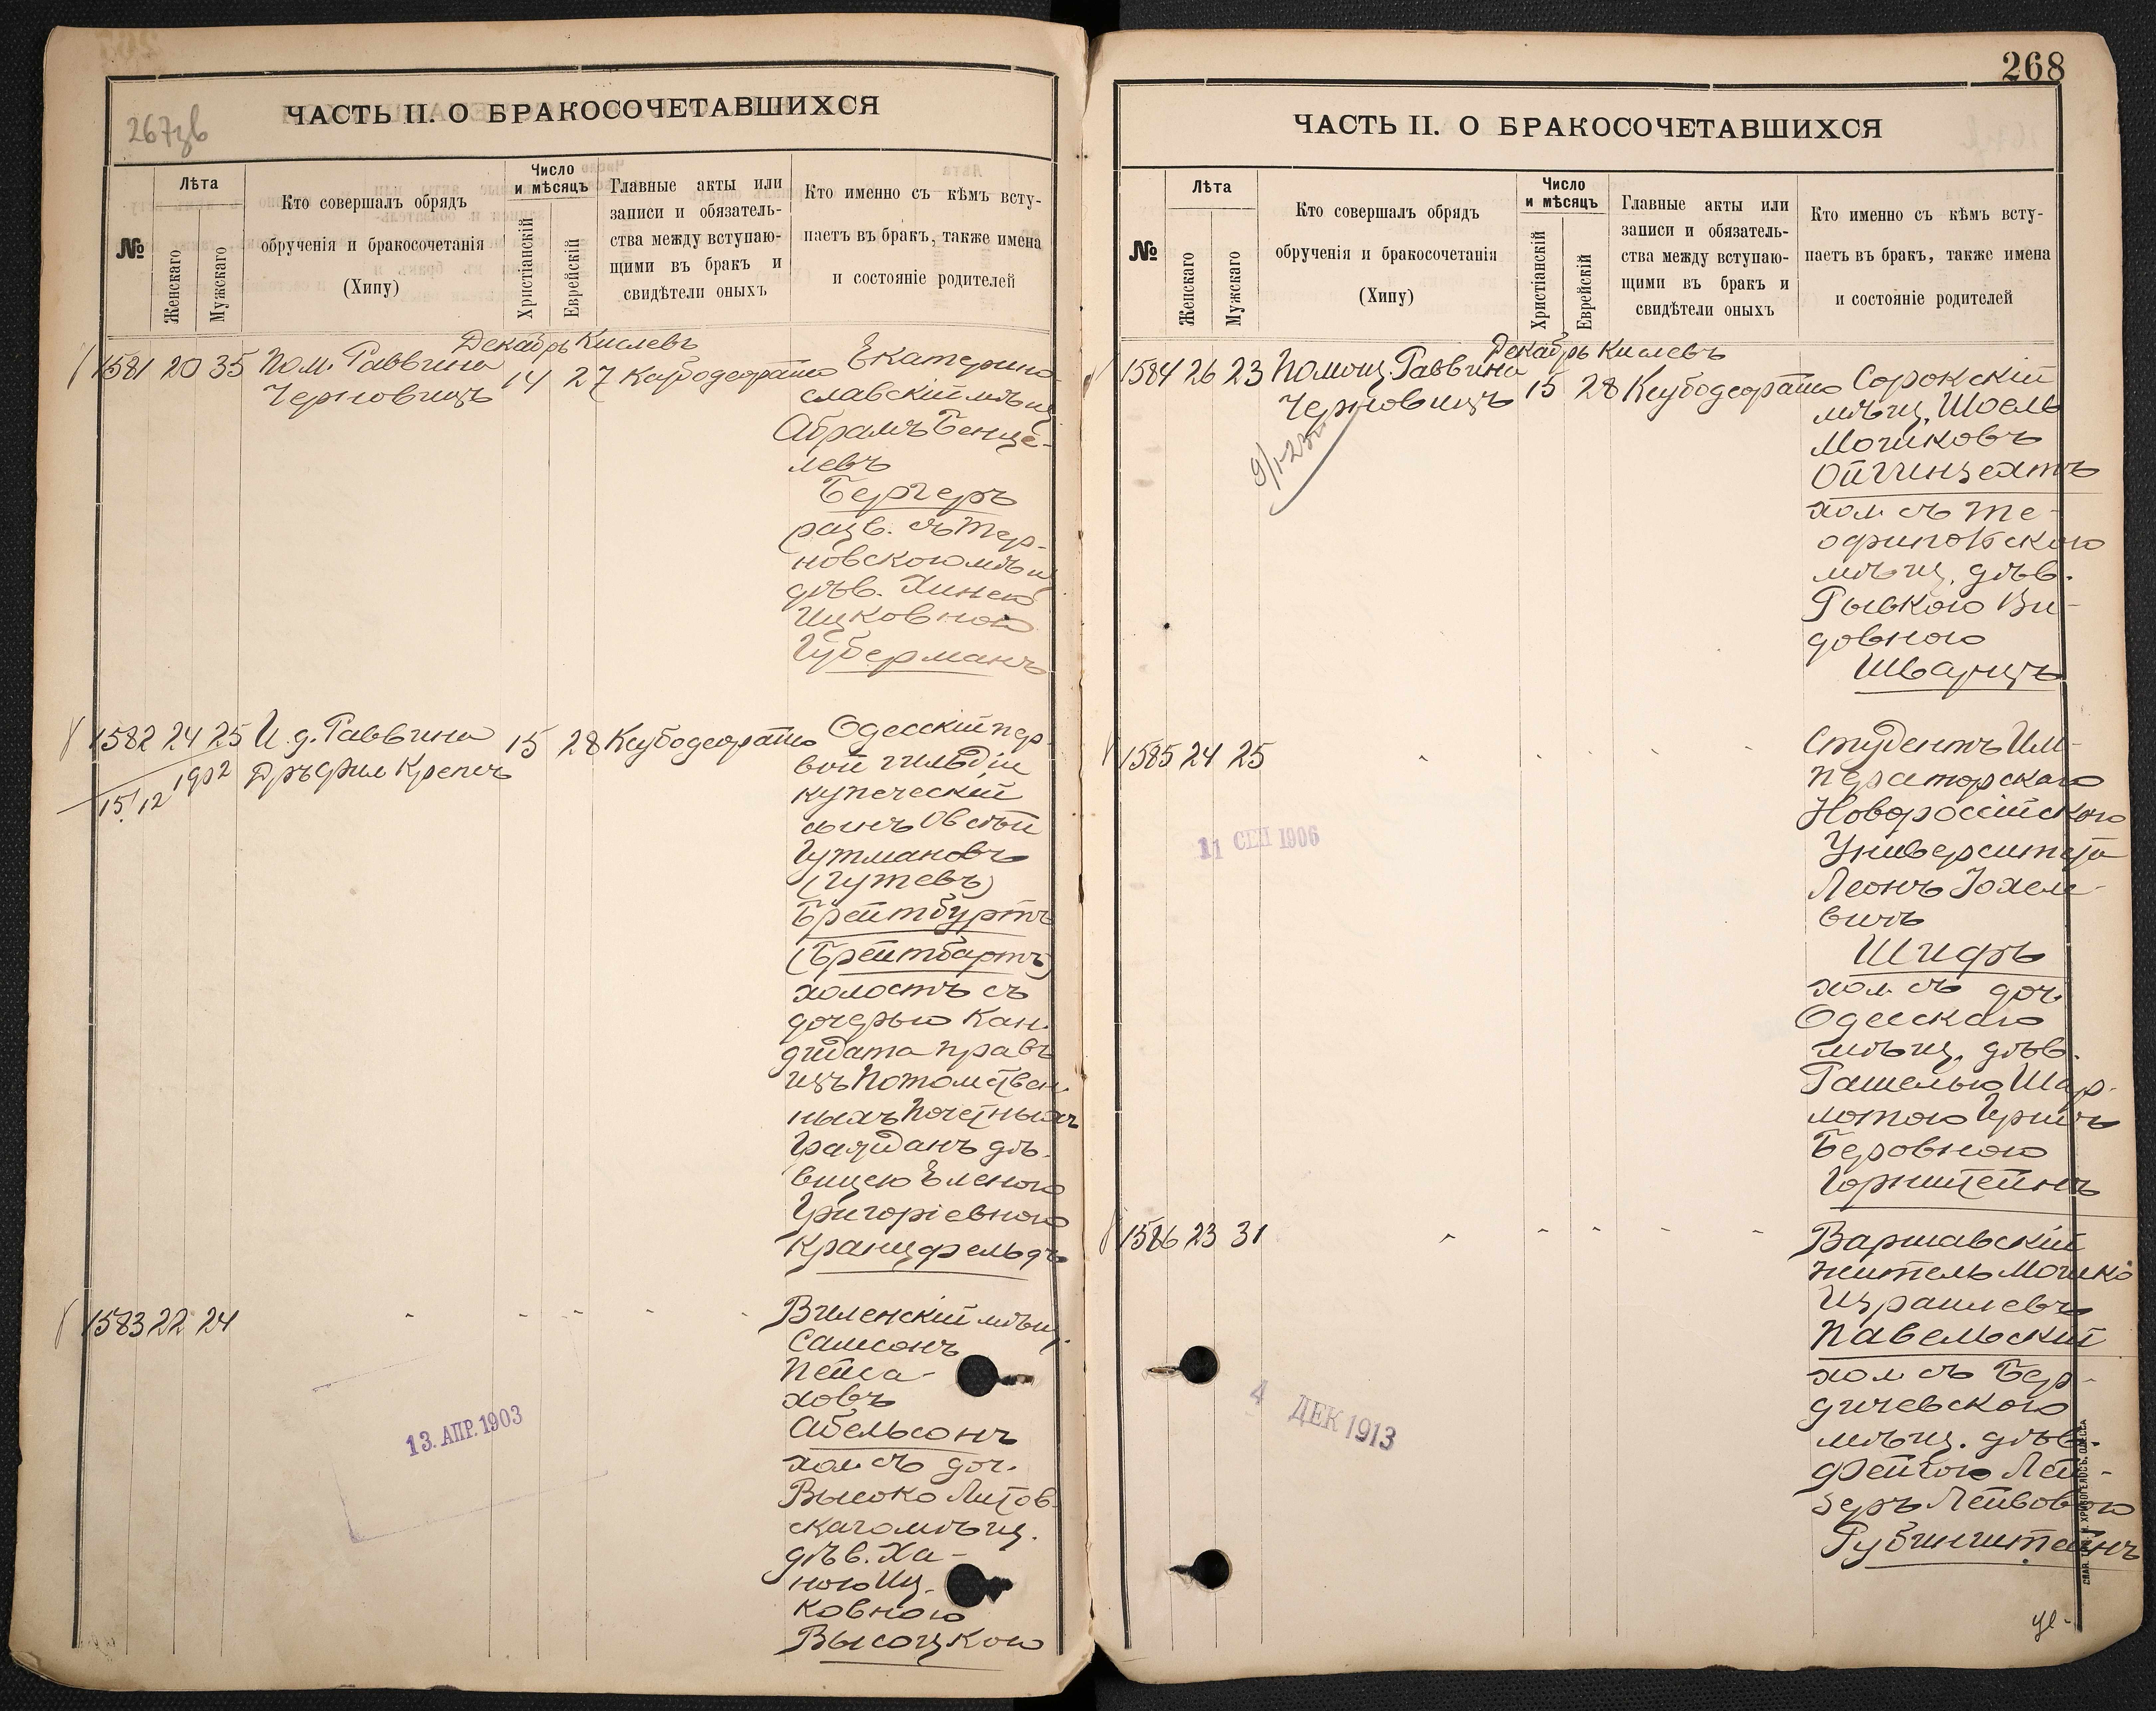 267зв
ЧАСТЬ II. О БРАКОСОЧЕТАВШИХСЯ
№
Лѣта
Женскаго
Мужскаго
Кто совершалъ обрядъ
обрученія и бракосочетанія
(Хипу)
Число
и мѣсяцъ
Христіанскій
Еврейскій
Главные акты или
записи и обязатель-
ства между вступаю-
щими въ бракъ и
свидѣтели оныхъ
Кто именно съ кѣмъ всту-
паетъ въ бракъ, также имена
и состояніе родителей
Декабрь Кислевъ
1581 20 35 Пом. Раввина
Черновицъ
14 27
Екатерино-
славскій мѣщ
Абрамъ Бенце-
левъ
Бергеръ
разв. съ Тер-
новскою мѣщ
дѣв. Хинею
Ицковною
Губерманъ
1582 24 25 И. д. Раввина
Дръ Фил Крепсъ
15 28
15/12 1902
Одесскій пер
вой гильдіи
купеческій
сынъ Овсѣй
Гутмановъ
(Гутевъ)
Брейтбуртъ
(Брейтбартъ)
холостъ съ
дочерью Кан-
дидата правъ
изъ Потомствен
ныхъ Почетныхъ
Гражданъ дѣ-
вицею Еленою
Григоріевною
Кранцфельдъ
1583 22 24 " " " " "
Виленскій мѣщ.
Самсонъ
Пейса-
ховъ
Абельсонъ
хол. съ доч.
Высоко Литов-
скаго мѣщ.
дѣв. Ха-
ною Иц-
ковною
Высоцкою
13. АПР. 1903
268
ЧАСТЬ II. О БРАКОСОЧЕТАВШИХСЯ
№
Лѣта
Женскаго
Мужскаго
Кто совершалъ обрядъ
обрученія и бракосочетанія
(Хипу)
Число
и мѣсяцъ
Христіанскій
Еврейскій
Главные акты или
записи и обязатель-
ства между вступаю-
щими въ бракъ и
свидѣтели оныхъ
Кто именно съ кѣмъ всту-
паетъ въ бракъ, также имена
и состояніе родителей
Декабрь Кислевъ
1584 26 23 Помощ. Раввина
Черновицъ
15 28
9/1-23
Сорокскій
мѣщ. Шоель
Мошковъ
Ойгинзехтъ
хол. съ Те-
офипольскою
мѣщ. дѣв.
Рывкою Ви-
довною
Шварцъ
1585 24 25 " " " " "
Студентъ Им-
ператорскаго
Новороссійскаго
Университета
Леонъ Іохеле-
вичъ
Шифъ
хол. съ доч.
Одесскаго
мѣщ. дѣв.
Рашелью Шар-
лотою Гришъ
Беровною
Горнштейнъ
11 СЕП 1906
1586 23 31 " " " " "
Варшавскій
житель Мошко
Израилевъ
Павельскій
хол. съ Бер-
дичевскою
мѣщ. дѣв.
Фейгою Лей-
зеръ Лейвовною
Рубинштейнъ
4 ДЕК 1913